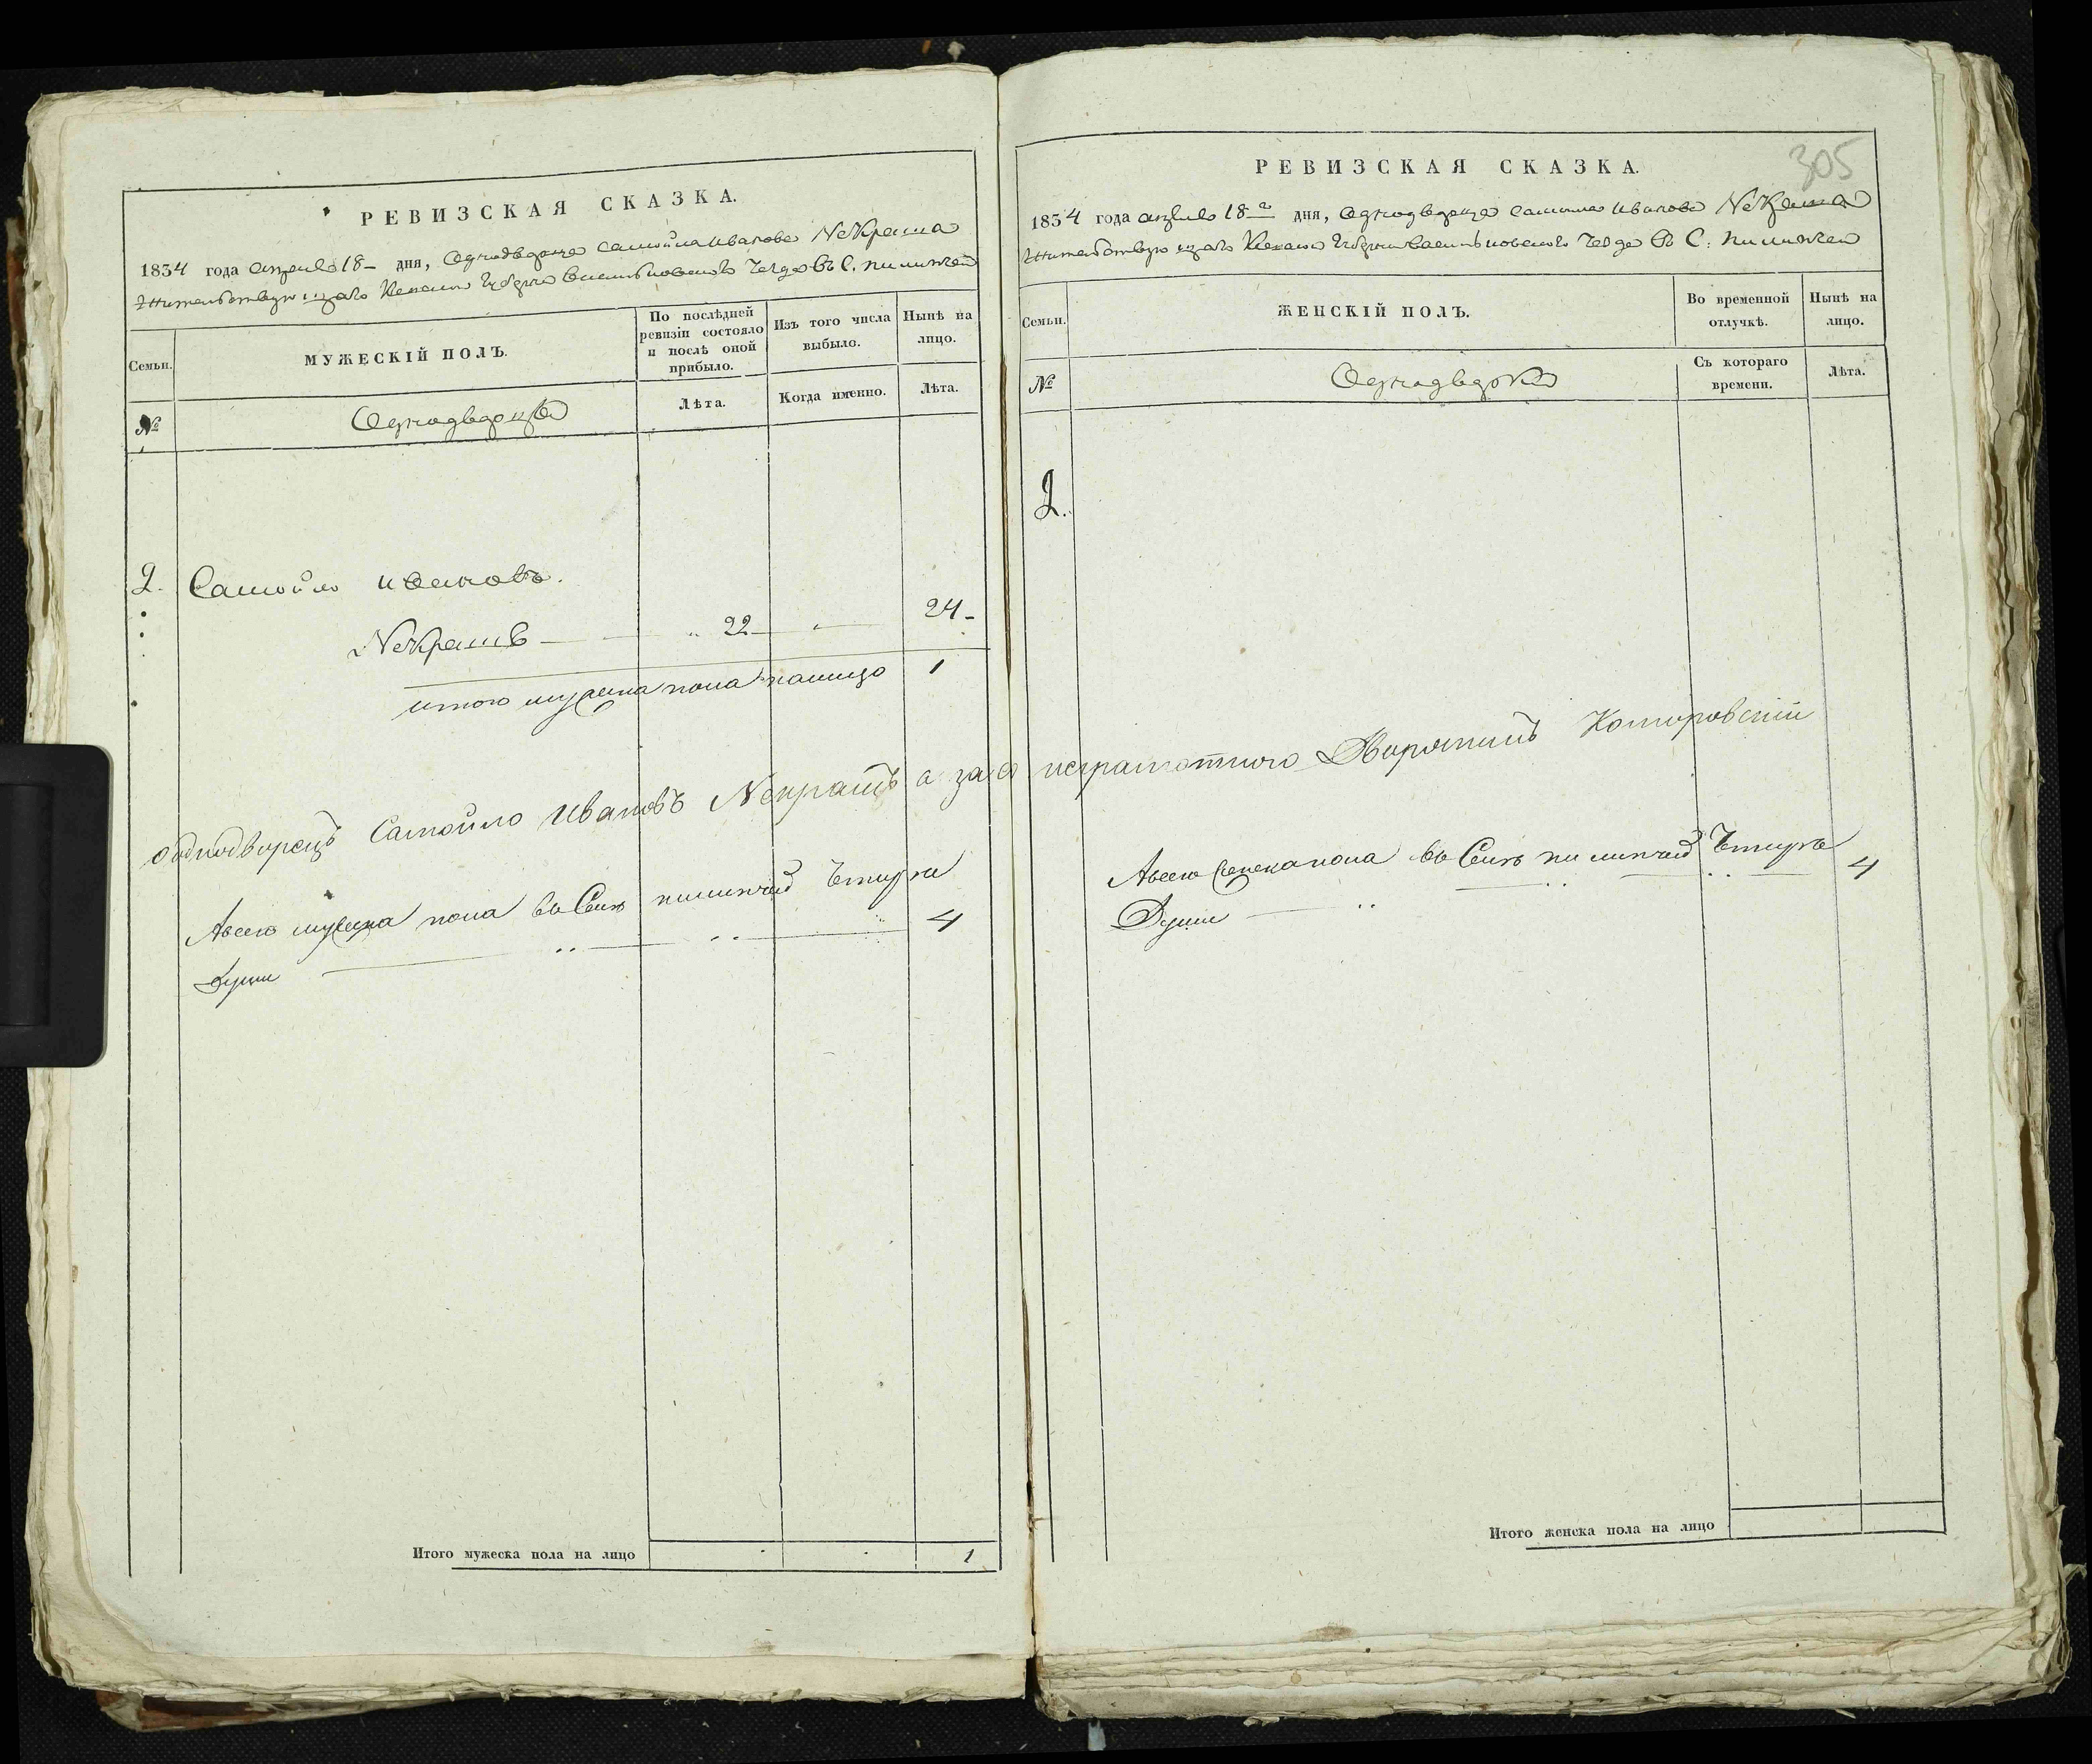 РЕВИЗСКАЯ СКАЗКА.
1834 года апреля 18 – дня, Однодворца Самойла Иванова Некраша
Жительствующаго Киевской Губернии Васильковского в С.
Семьи.
МУЖЕСКІЙ ПОЛЪ.
По послѣдней ревизіи состояло и послѣ оной прибыло.
Изъ того числа выбыло.
Нынѣ на лицо.
№
Однодворцы
Лѣта.
Когда именно.
Лѣта.
2. Самойло Ивановъ.
Некрашъ — 22 — 24 –
итого мужеска пола налицо 1
однодворецъ Самойло Ивановъ Некрашъ а за его неграмотного Дворянинъ
Авсего мужеска пола в Четыре
Души 4
Итого мужеска пола на лицо 1
305
РЕВИЗСКАЯ СКАЗКА.
1834 года апреля 18 го дня, Однодворца Самойла Иванова Некраша
Жительствующаго Киевской Губернии Васильковского в С.
Семьи.
ЖЕНСКІЙ ПОЛЪ.
Во временной отлучкѣ.
Нынѣ на лицо.
№
Однодворки
Съ котораго времени.
Лѣта.
2.
Авсего женска пола в Четыре
Души 4
Итого женска пола на лицо